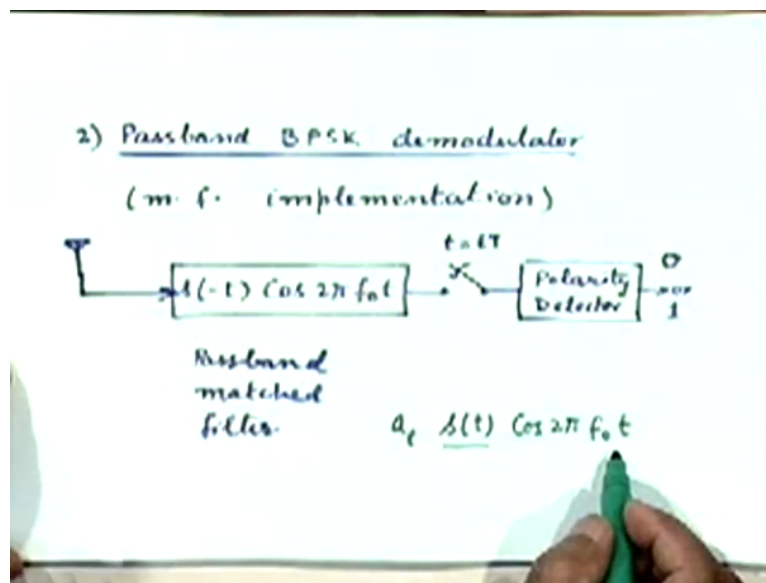 2) Passband BPSK demodulator
(m.f. implementation)
t = lT
s(-t) Cos 2π f₀t
Polarity
Detector
0
or
1
Passband
matched
filter.
aₗ s(t) Cos 2π f₀ t